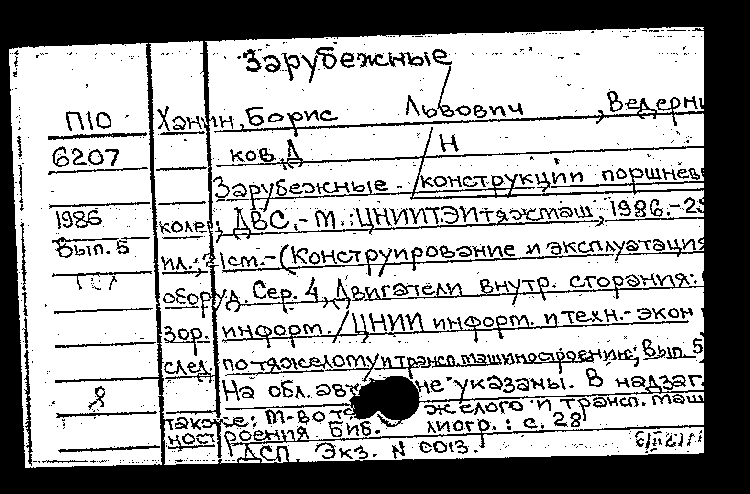 Зарубежные
П10 Ханин, Борис Львович, Ведерни
6207 ков, Д Н
Зарубежные конструкции поршнев
1986 колец ДВС.-М.:ЦНИИТЭИтяжмаш, 1986.-25
Вып.5 ил.; 21см.-(Конструирование и эксплуатация
оборуд. Сер. 4, Двигатели внутр. сгорания:
зор. информ./ЦНИИ информ. и техн.-экон
след. по тяжелому и трансп. машиностроению; Вып 5)
8 На обл. авт не указаны. В надзаг.
также: М-во тяжелого и трансп. маш
ностроения Биб- лиогр.: с. 28
ДСП. Экз. N 0013.